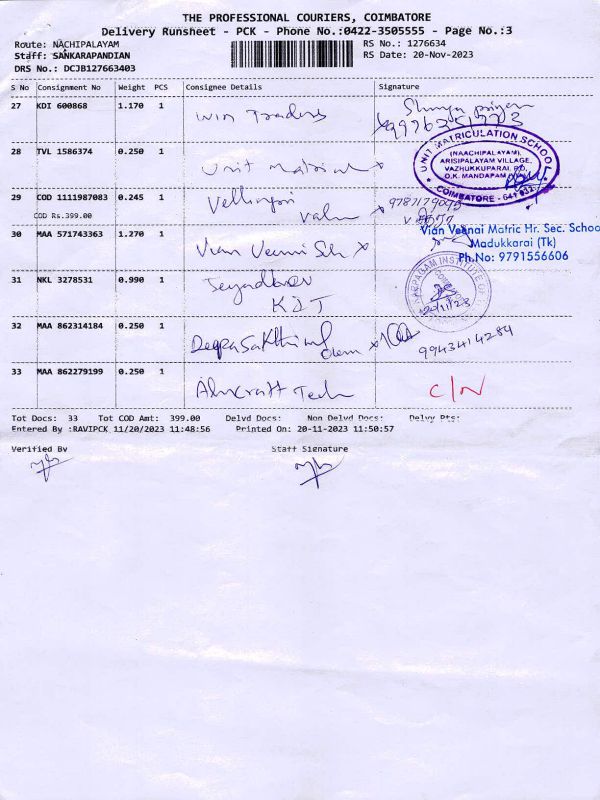 THE PROFESSIONAL COURIERS, COIMBATORE
Delivery Runsheet - PCK - Phone No.:0422-3505555 - Page No.:3
Route: NACHIPALAYAM RS No.: 1276634
Staff: SANKARAPANDIAN RS Date: 20-Nov-2023
DRS No.: DCJB127663403
S No Consignment No Weight PCS Consignee Details Signature
27 KDI 600868 1.170 1 Win Traders
28 TVL 1586374 0.250 1 Unit
UNIT MATRICULATION SCHOOL
(NAACHIPALAYAM),
ARISIPALAYAM VILLAGE,
VAZHUKKUPARAI PO,
O.K. MANDAPAM
COIMBATORE - 641 032
29 COD 1111987083 0.245 1
COD Rs.399.00
30 MAA 571743363 1.270 1 Vian Veenai Sch
Vian Veenai Matric Hr. Sec. Schoo
Madukkarai (Tk)
Ph.No: 9791556606
31 NKL 3278531 0.990 1
KIT
KARPAGAM INSTITUTE OF
20/11/23
32 MAA 862314184 0.250 1 9943414284
33 MAA 862279199 0.250 1 Tech C/N
Tot Docs: 33 Tot COD Amt: 399.00 Delvd Docs: Non Delvd Docs: Delvy Pts:
Entered By :RAVIPCK 11/20/2023 11:48:56 Printed On: 20-11-2023 11:50:57
Verified By Staff Signature